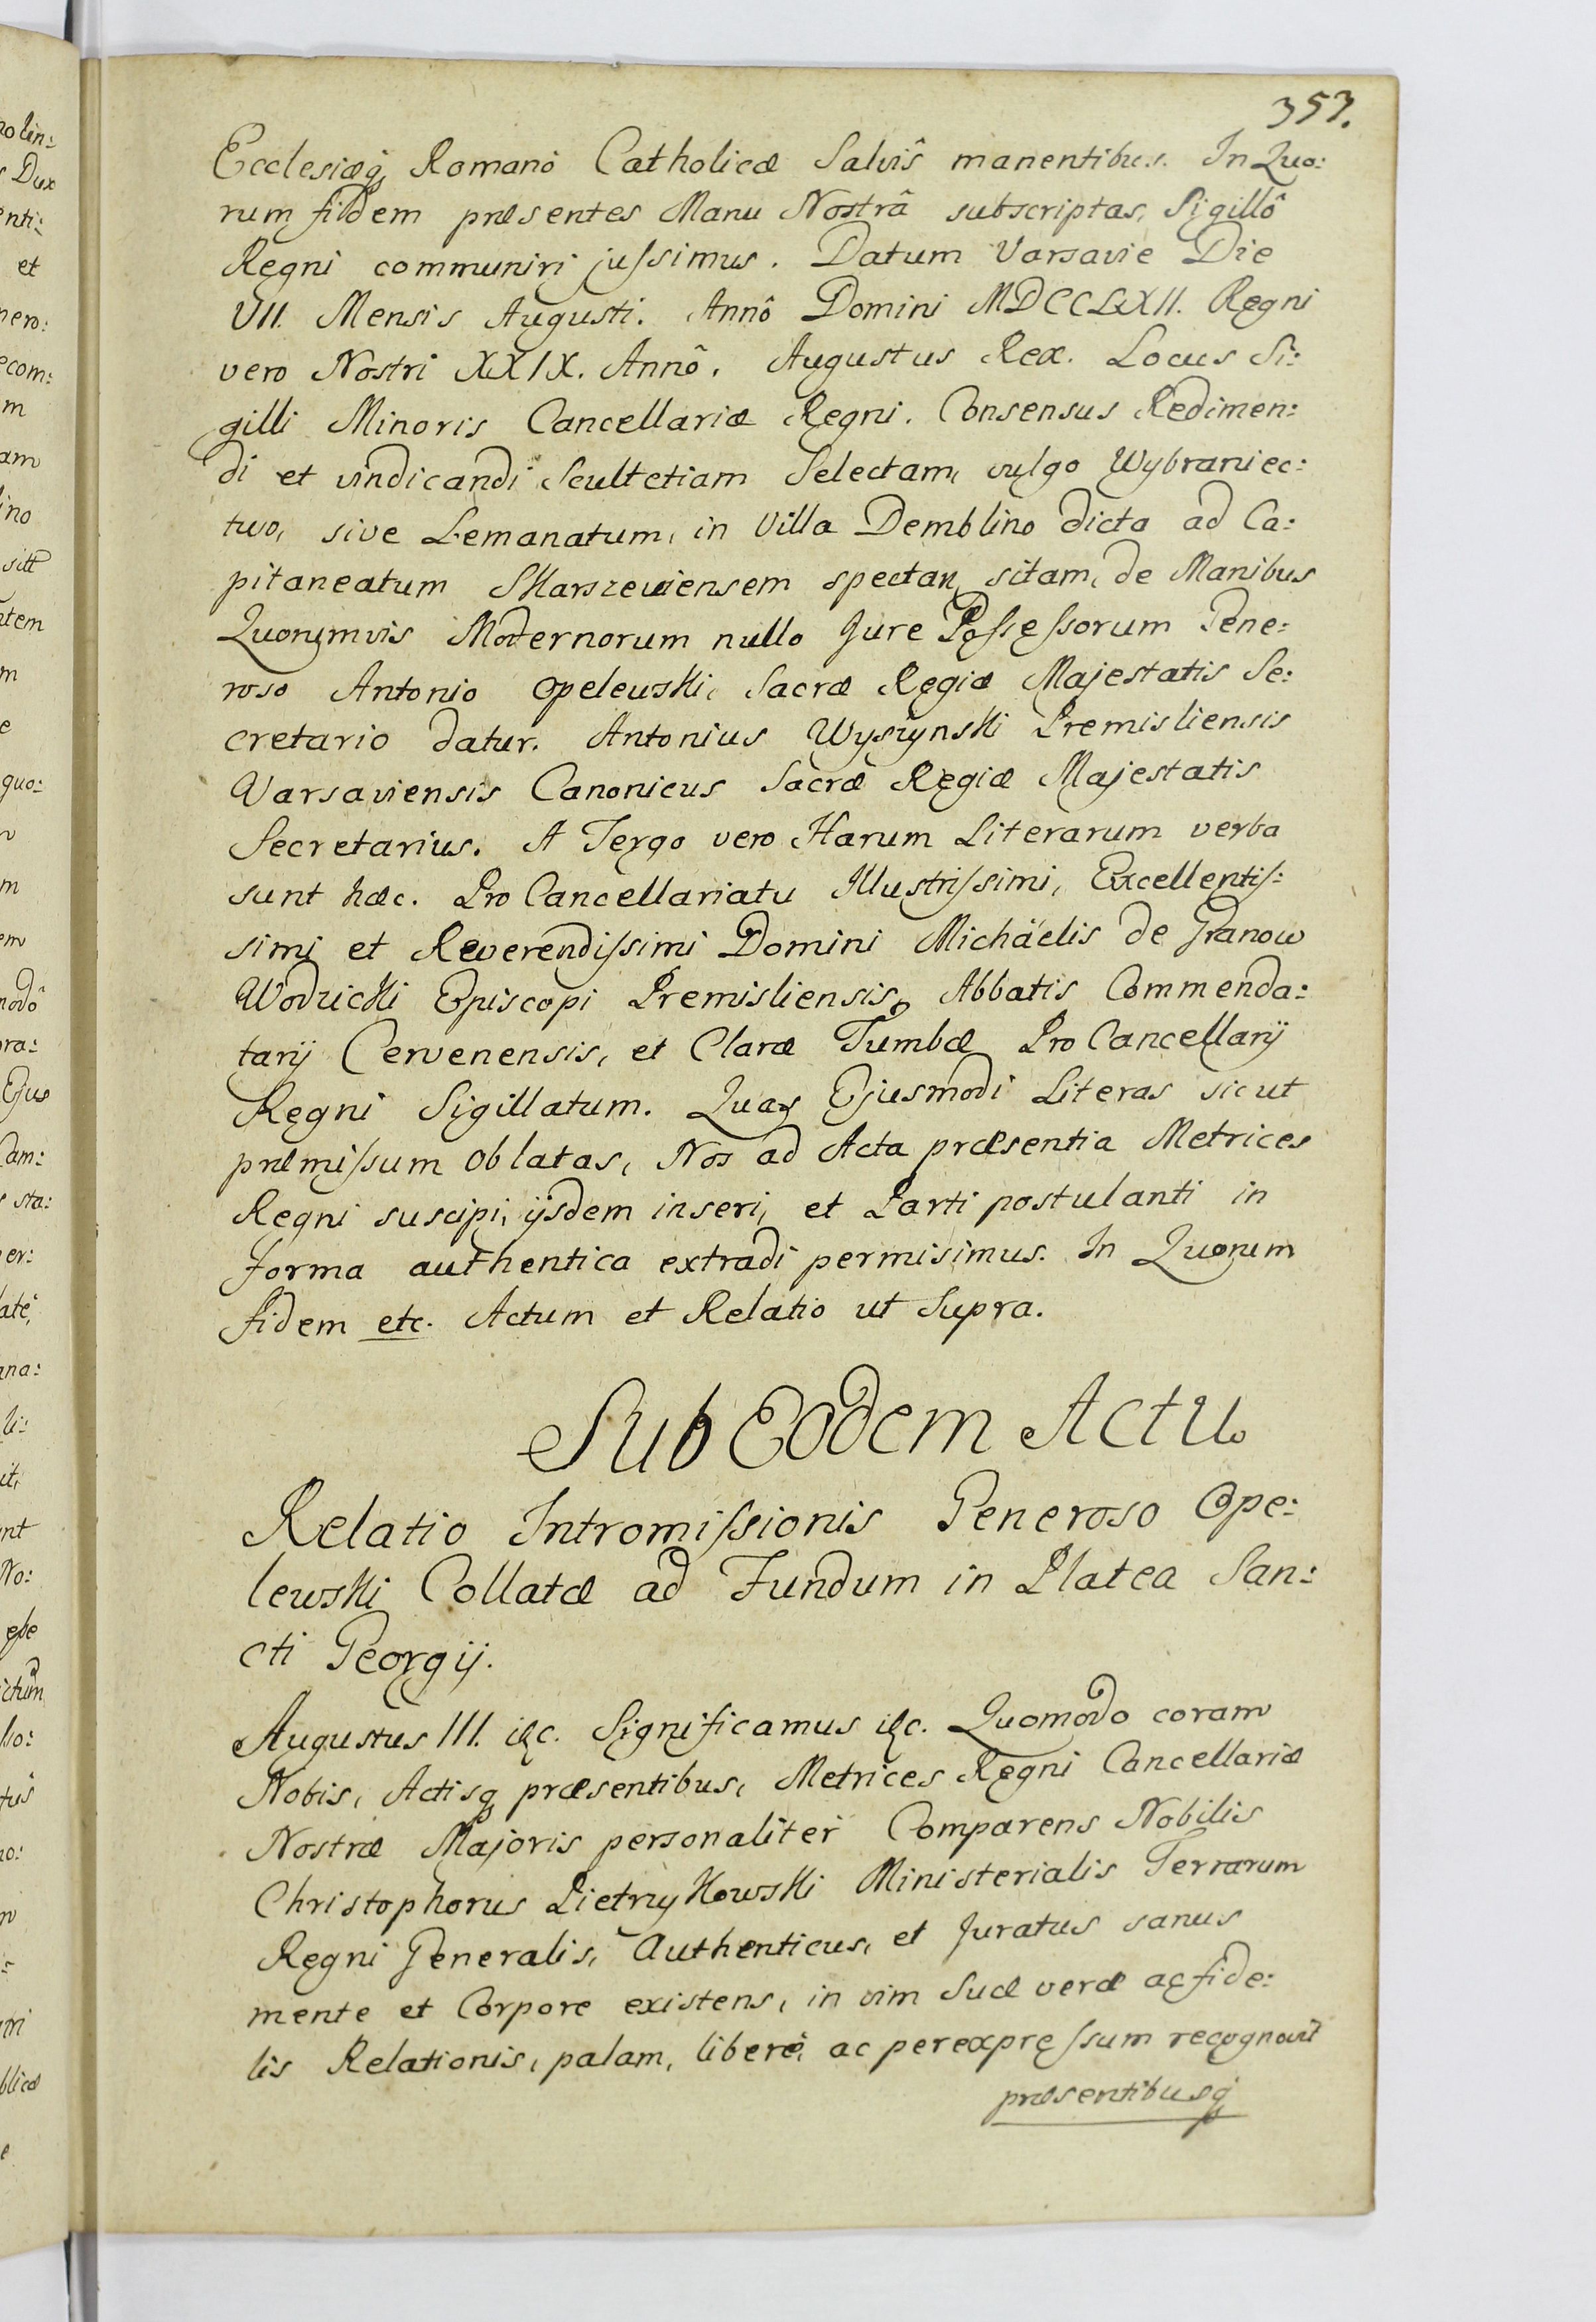 353.
Ecclesiæq; Romanô Catholicæ Salvis̑ manentibus. In Quo:
rum fidem præsentes Manu Nostrâ subscriptas, Sigillô
Regni communiri jussimus. Datum Varsavie Die
VII. Mensis Augusti. Annô Domini MDCCLXII. Regni
vero Nostri XXIX. Annô. Augustus Rex. Locus Si:
gilli Minoris Cancellariæ Regni. Consensus Redimen:
di et vindicandi Scultetiam Selectam, vulgo Wybraniec:
two, sive Lemanatum, in Villa Demblino dicta ad Ca:
pitaneatum Skarszeviensem spectan, sitam, de Manibus
Quorumvis Modernorum nullo Jure Possessorum Gene:
roso Antonio Opelewski, Sacræ Regiæ Majestatis Se:
cretario datur. Antonius Wyszynski Premisliensis
Varsaviensis Canonicus Sacræ Regiæ Majestatis
Secretarius. A Tergo vero Harum Literarum verba
sunt hæc. Pro Cancellariatu Illustrissimi, Excellentis:
simi et Reverendissimi Domini Michäelis de Granow
Wodzicki Episcopi Premisliensis, Abbatis Commenda:
tarij Cervenensis, et Claræ Tumbæ Pro Cancellarij
Regni Sigillatum. Quas Ejusmodi Literas sicut
præmissum oblatas, Nos ad Acta præsentia Metrices
Regni suscipi, ijsdem inseri, et Parti postulanti in
forma authentica extradi permisimus. In Quorum
fidem etc. Actum et Relatio ut Supra.
Sub Eodem Actu
Relatio Intromissionis Generoso Ope:
lewski Collatæ ad Fundum in Platea San:
cti Georgij.
Augustus III. &c. Significamus &c. Quomodo coram
Nobis, Actisq; præsentibus, Metrices Regni Cancellariæ
Nostræ Majoris personaliter Comparens Nobilis
Christophorus Pietrzykowski Ministerialis Terrarum
Regni Generalis, Authenticus, et Juratus sanus
mente et Corpore existens, in vim Suæ veræ ac fide:
lis Relationis, palam, liberè, ac per expressum recognovit
præsentibusq;